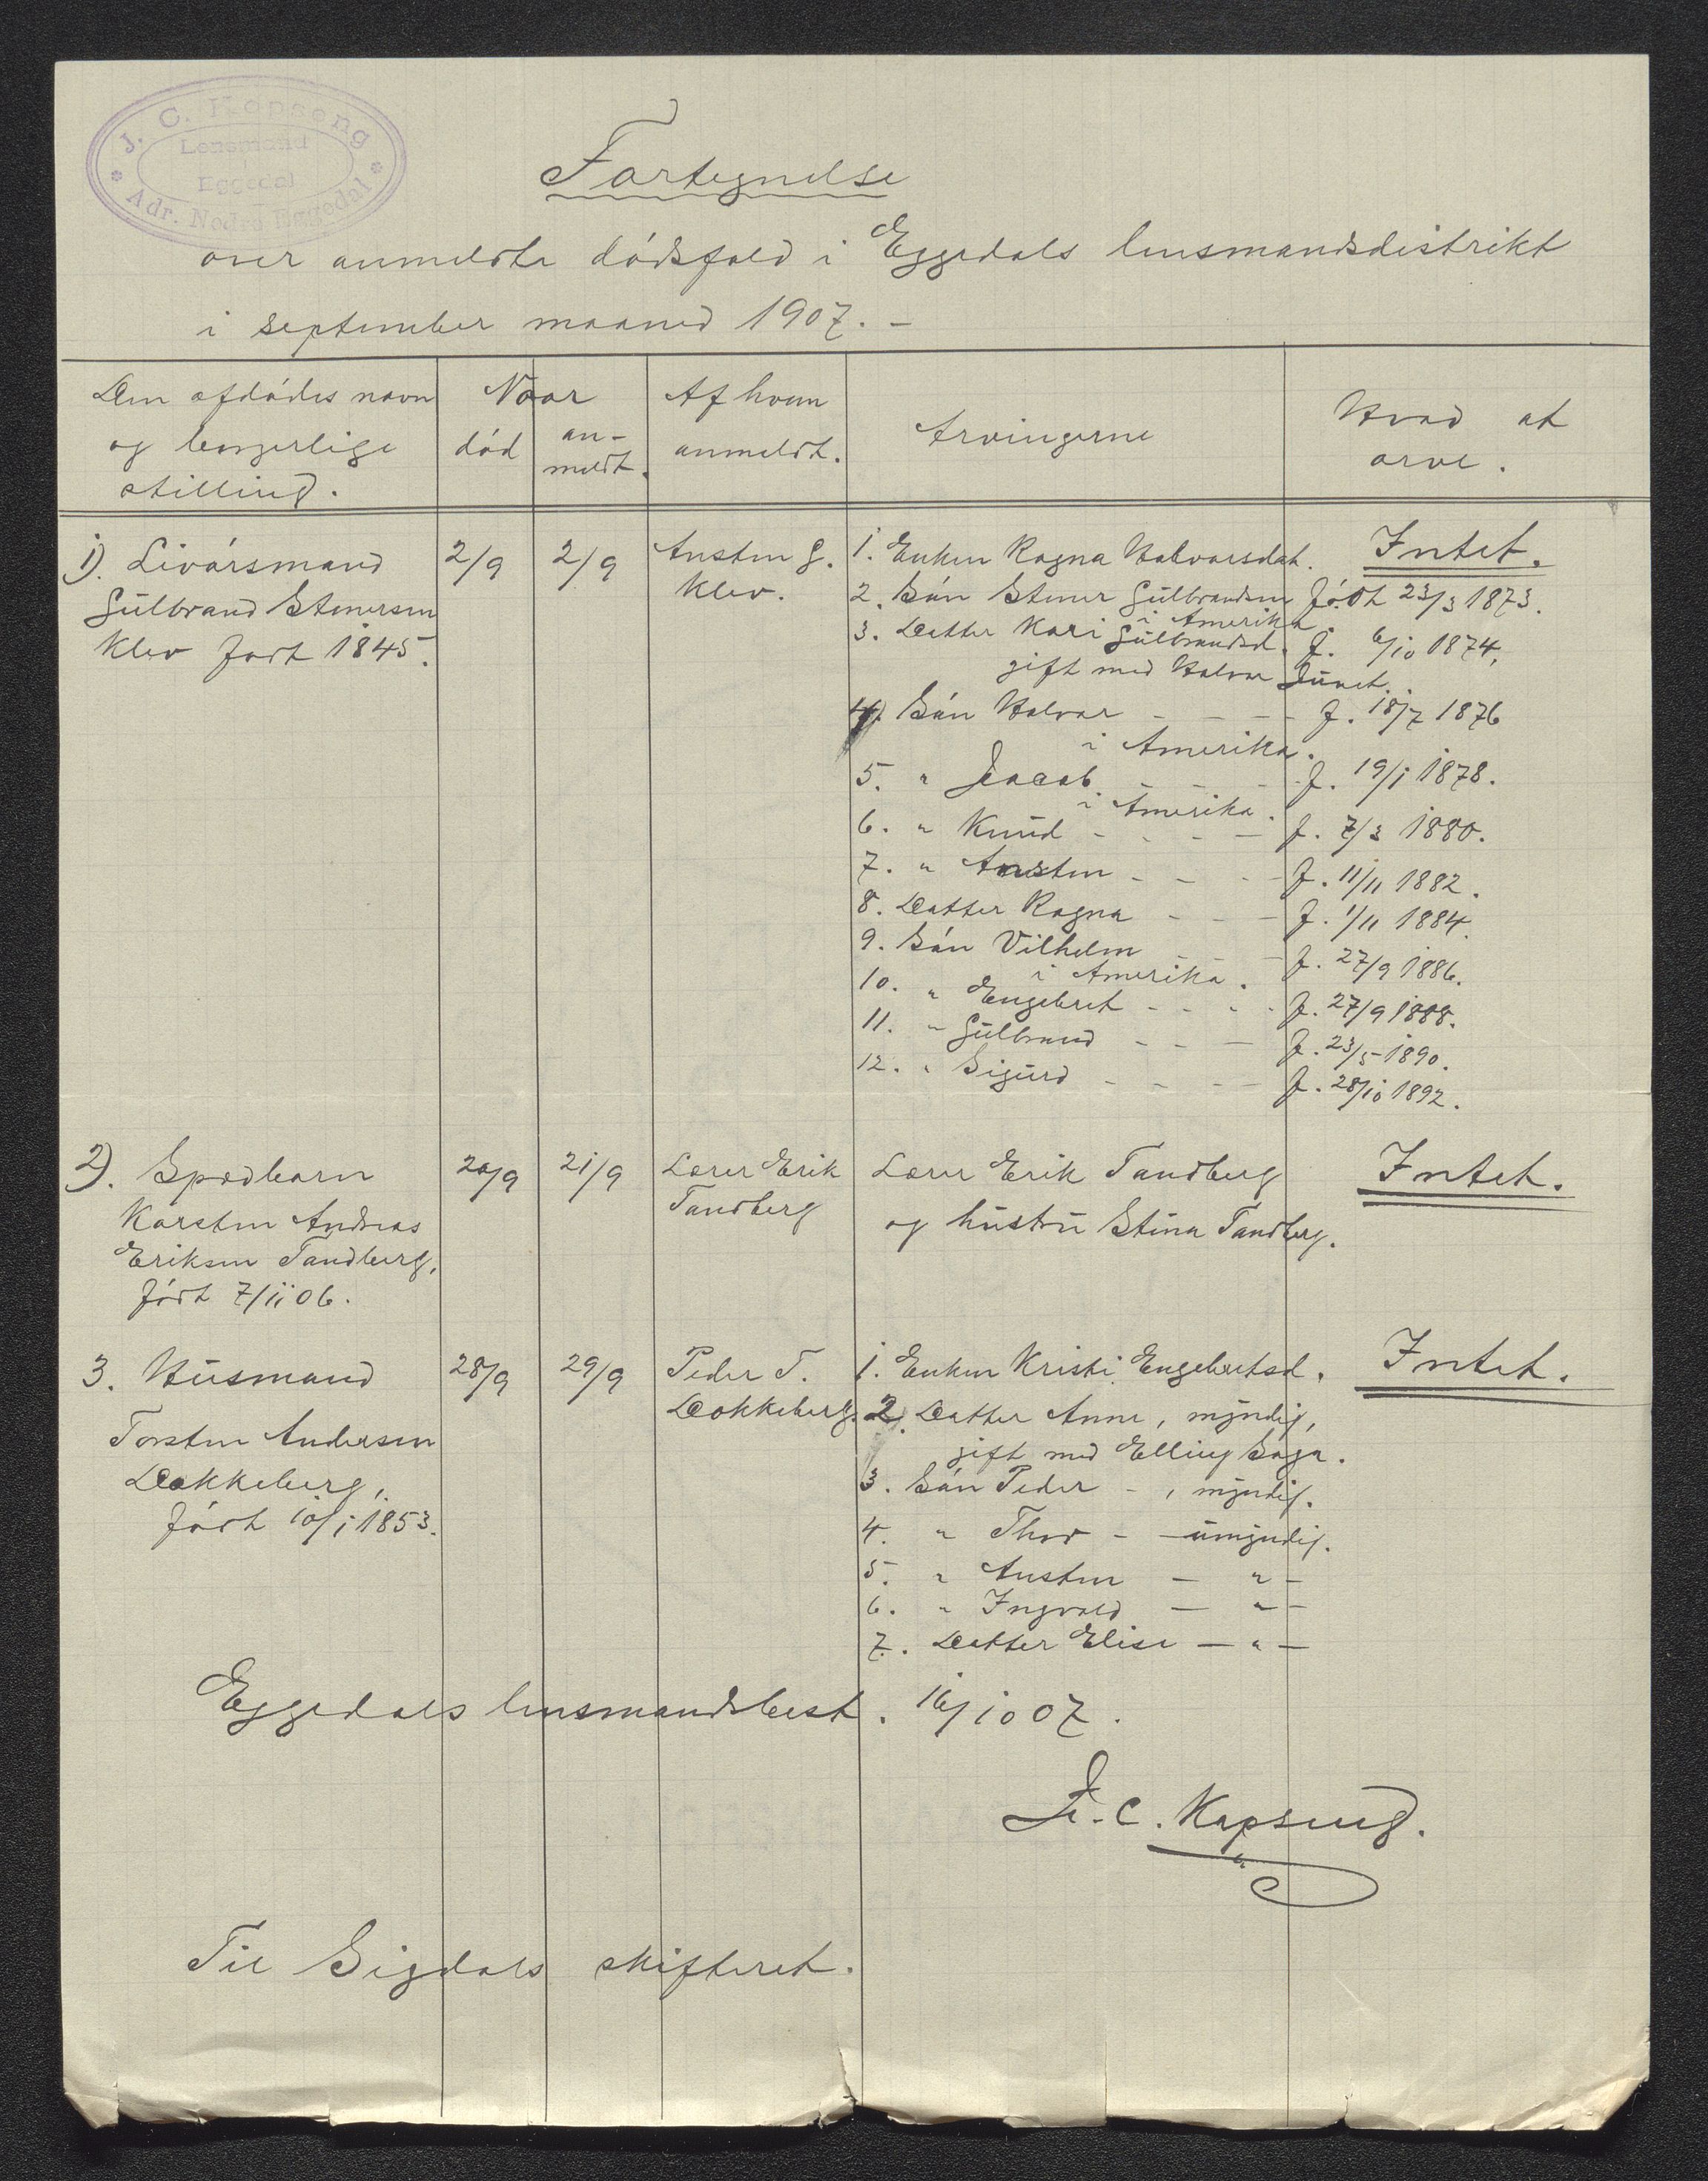 J. C. Kopseng
Lensmand
i
Eggedal
Adr. Nedre Eggedal
Fortegnelse
over anmeldte dødsfald i Eggedals lensmandsdistrikt
i september maaned 1907. –
Den afdødes navn
og borgerlige
stilling.
Naar
død
an-
meldt.
Af hvem
anmeldt.
Arvingerne
Hvad at
arve.
1). Livørsmand
Gulbrand Stenersen
Klev født 1845.
2/9
2/9
Austen G.
Klev.
Intet.
1. Enken Ragna Halvorsdat.
2. Søn Stener Gulbrandsen født 23/3 1873.
i Amerika.
3. Datter Kari Gulbrandsd. f. 6/10 1874,
gift med Halvor Dunet.
4) Søn Halvor – – – – f. 18/7 1876
i Amerika.
5. " Jacob – – – – f. 19/1 1878.
i Amerika.
6. " Knud – – – – f. 7/3 1880.
7. " Austen – – – f. 11/11 1882.
8. Datter Ragna – – – f. 1/11 1884.
9. Søn Vilhelm – – – f. 27/9 1886.
i Amerika.
10. " Engebret – – – – f. 27/9 1888.
11. " Gulbrand – – – f. 23/5 1890.
12. " Sigurd – – – – f. 28/10 1892.
2). Spædbarn
Karsten Andreas
Eriksen Tandberg,
født 7/11 06.
20/9
21/9
Lærer Erik
Tandberg
Lærer Erik Tandberg
og hustru Stina Tandberg.
Intet.
3. Husmand
Torsten Andersen
Dokkeberg,
født 10/1 1853.
28/9
29/9
Peder T.
Dokkeberg.
Intet.
1. Enken Kristi Engebretsd.
2. Datter Anne, myndig,
gift med Elling Haga.
3. Søn Peder – , myndig.
4. " Thor – – umyndig.
5. " Austen – " –
6. " Ingvald – " –
7. Datter Elise – " –
Eggedals lensmandsbest. 16/10 07.
J. C. Kopseng.
Til Sigdals skifteret.